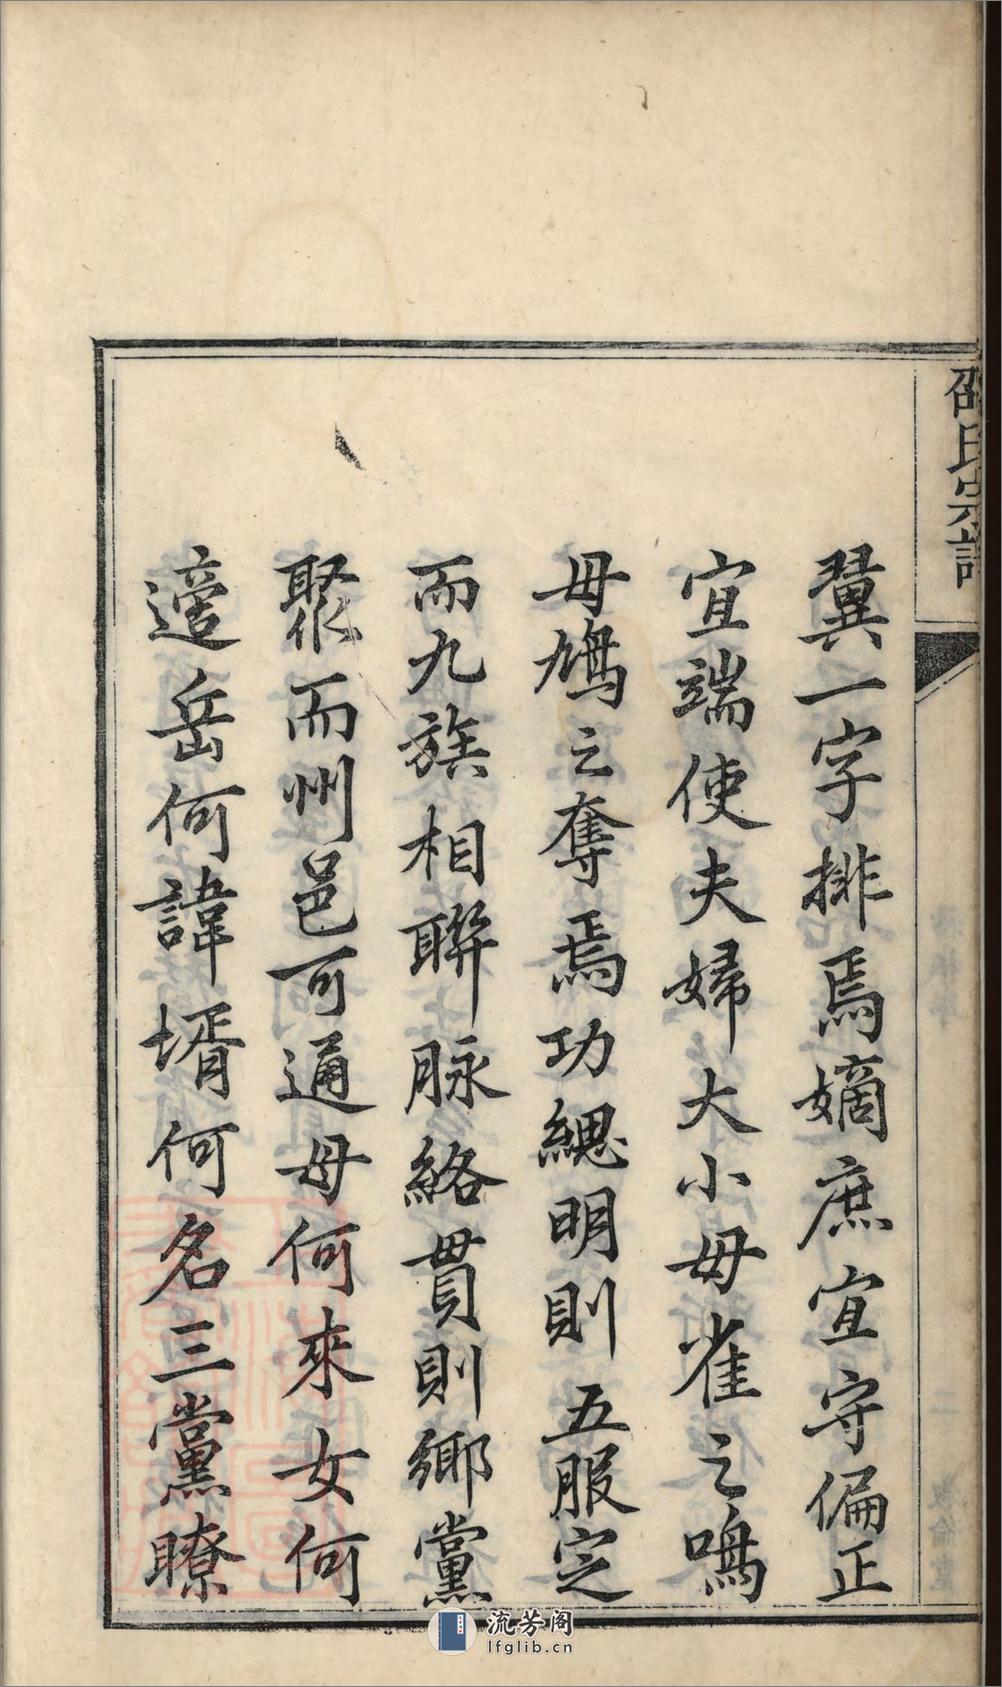 邵氏宗譜
翼一字排焉嫡庶宜守偏正
宜端使夫婦大小毋雀之鳴
毋鳩之奪焉功緦明則五服定
而九族相聯脉絡貫則鄉黨
聚而州邑可通母何來女何
適岳何諱壻何名三黨瞭
流芳阁
lfglib.cn